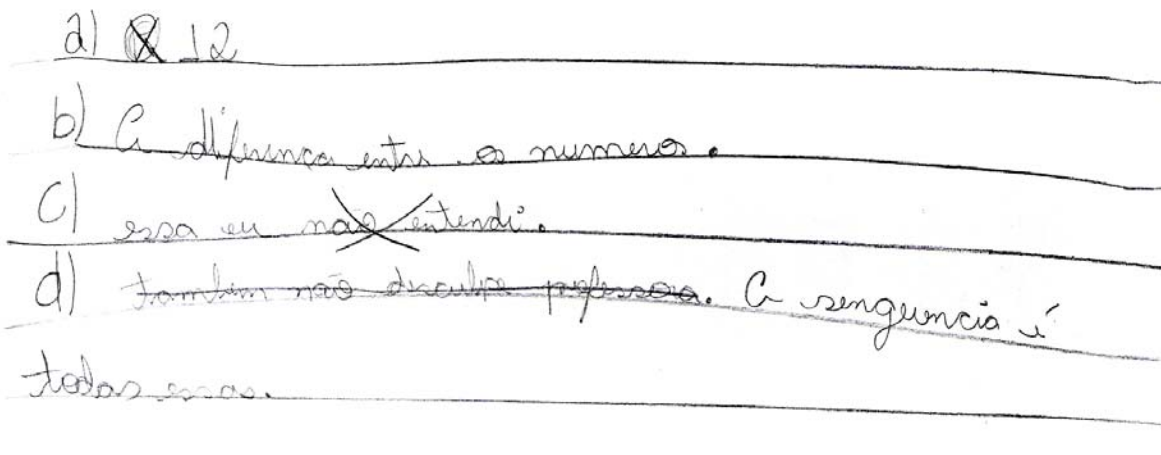 a) 12
b) A diferença entre os numeros.
c) essa eu não entendi.
d) tambim não disculpe professora. A senguencia é
todas essas.